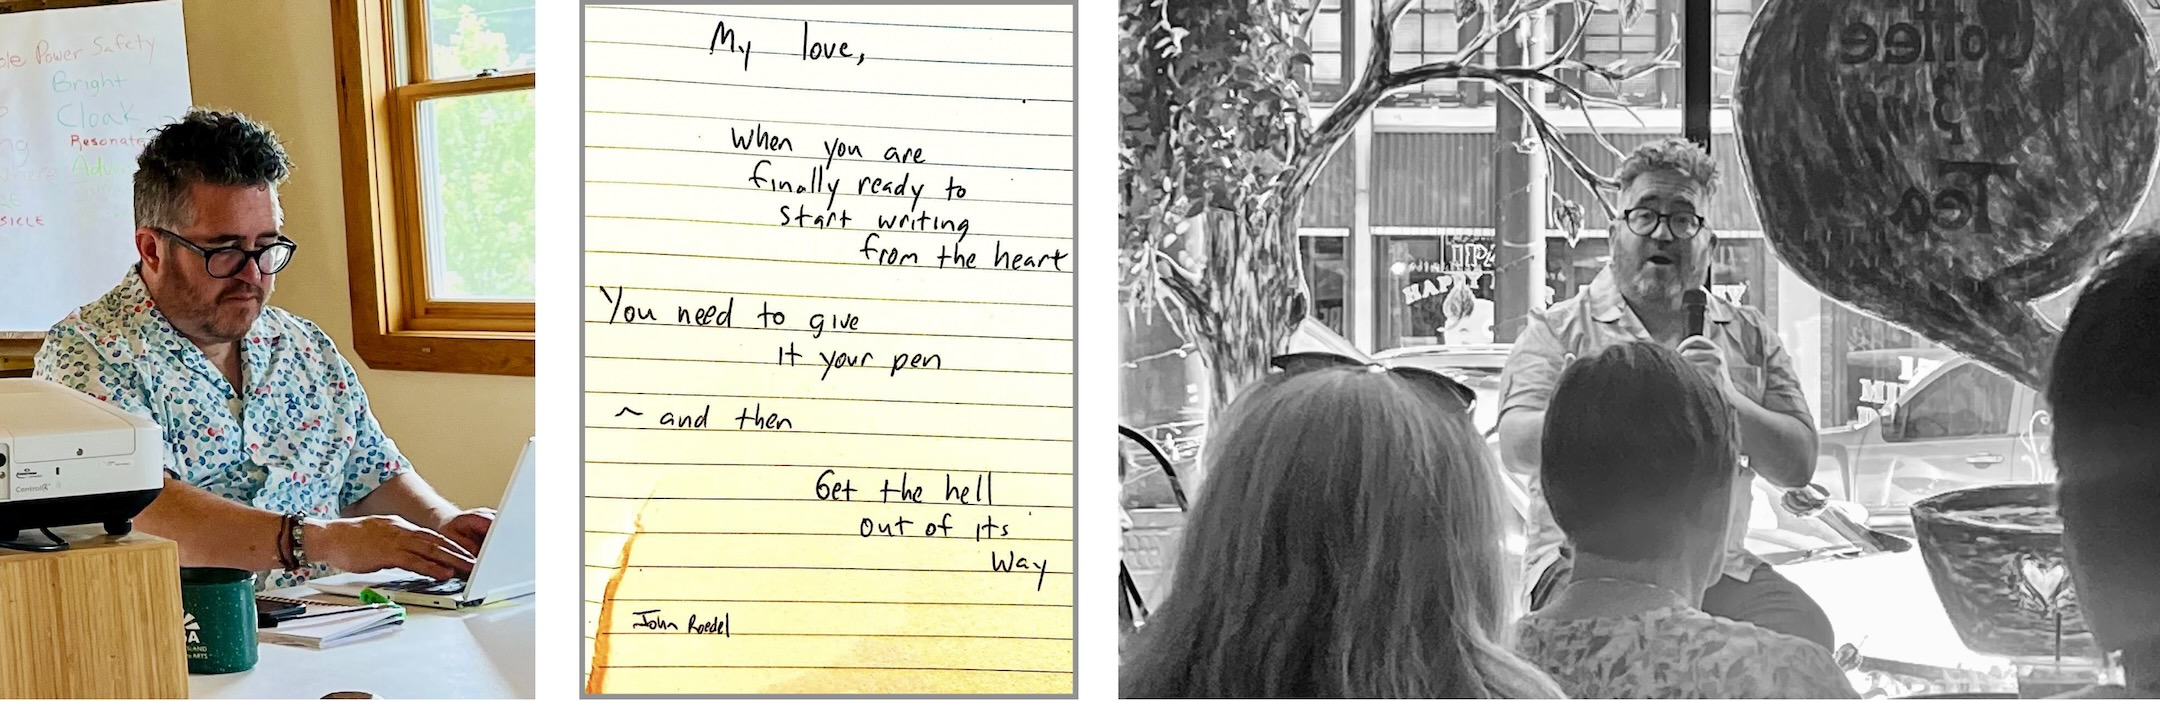 Power Safety
Bright
Cloak
Resonate
My love,
When you are
finally ready to
start writing
from the heart
You need to give
it your pen
~ and then
Get the hell
out of its
way
John Roedel
Coffee
Tea
HAPPY